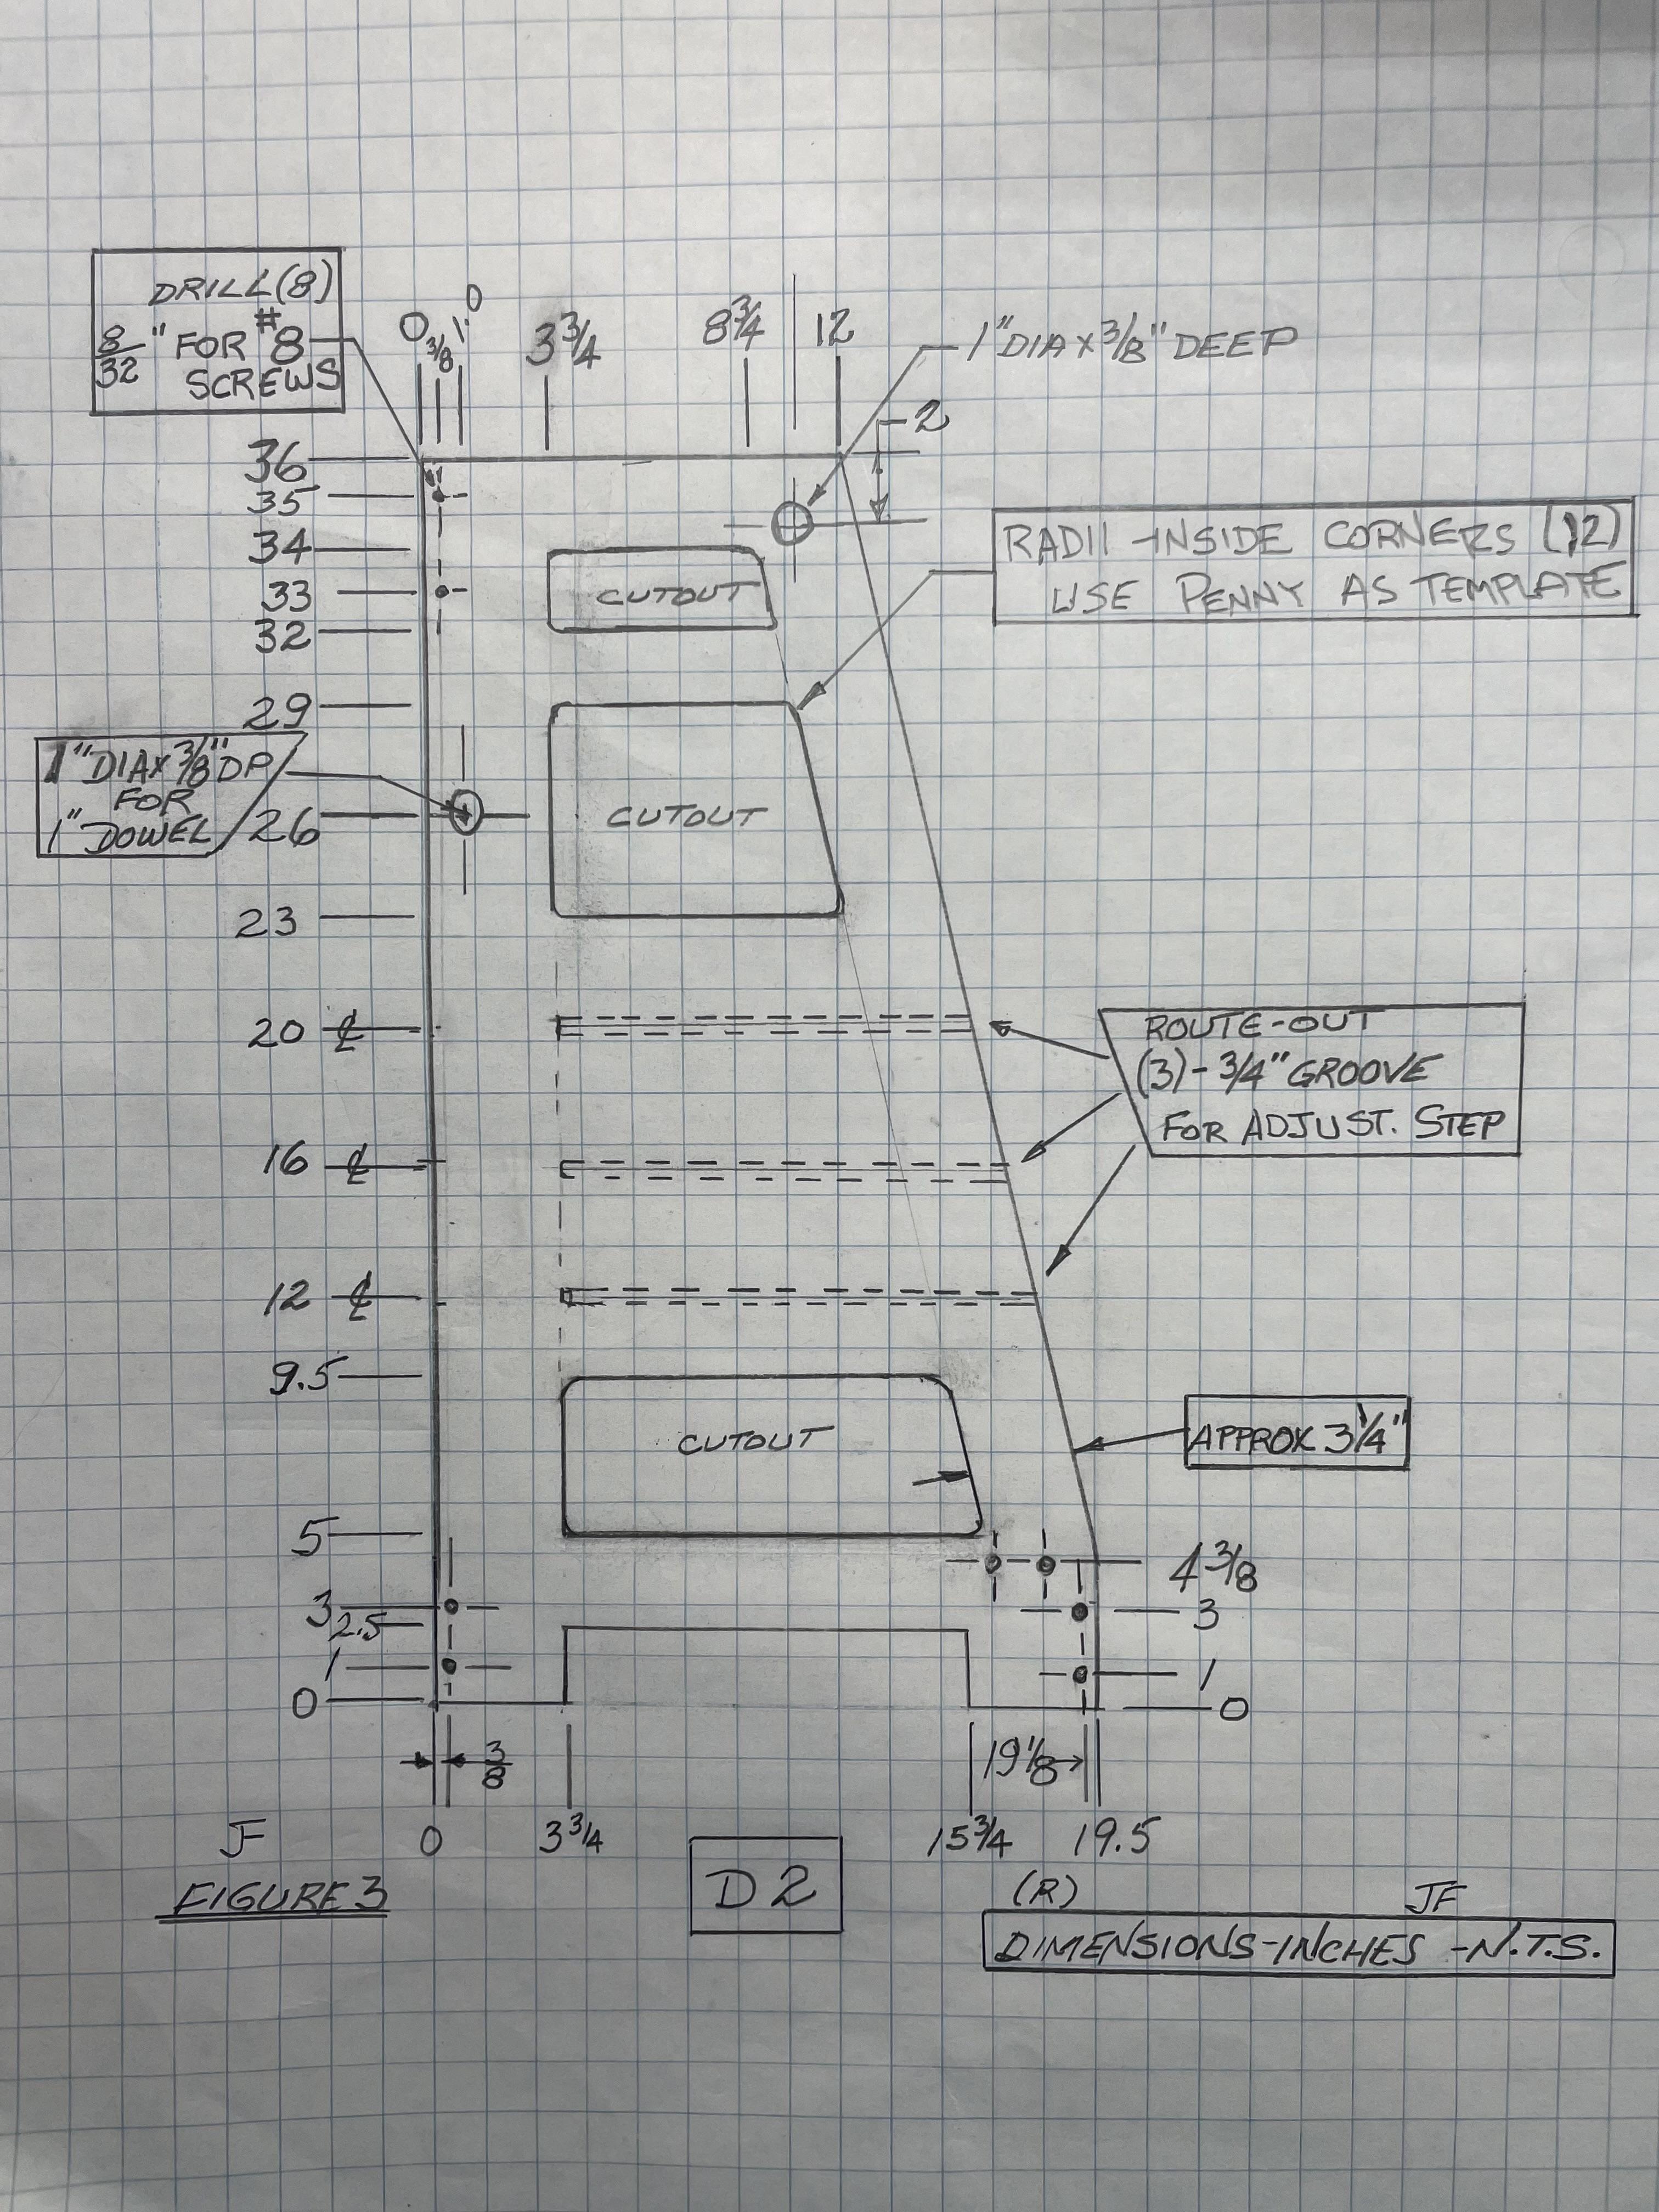 DRILL (8)
8/32" FOR #8
SCREWS
0 3/8 1.0 3 3/4 8 3/4 12
1" DIA X 3/8" DEEP
2
36
35
34
33
32
29
RADII -INSIDE CORNERS (12)
USE PENNY AS TEMPLATE
CUTOUT
1" DIA X 3/8" DP
FOR
1" DOWEL
26
CUTOUT
23
20 ℄
16 ℄
12 ℄
ROUTE-OUT
(3)- 3/4" GROOVE
FOR ADJUST. STEP
9.5
CUTOUT
APPROX 3 1/4"
5
3
2.5
1
0
4 3/8
3
1
0
3/8
19 1/8
JF 0 3 3/4 15 3/4 19.5
FIGURE 3
D2
(R) JF
DIMENSIONS-INCHES -N.T.S.